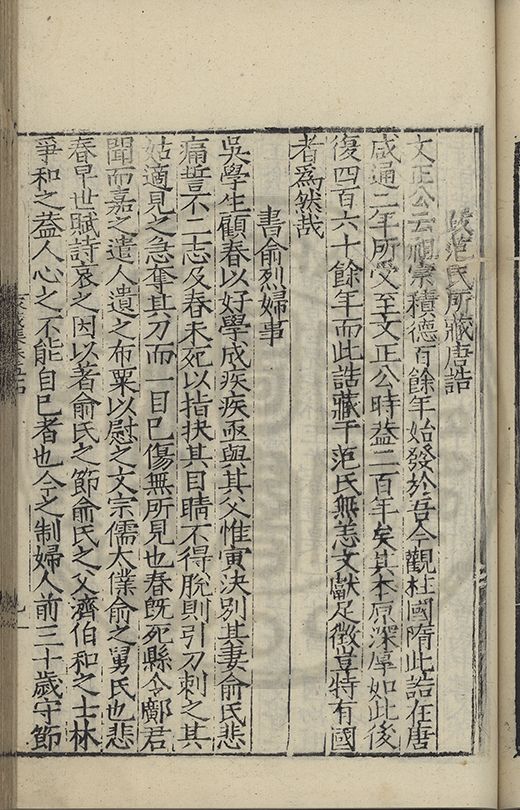 跋范氏所藏唐誥
文正公云祖宗積德百餘年始發於吾今觀柱國隋此誥在唐
咸通二年所受至文正公時葢二百年矣其本原深厚如此後
復四百六十餘年而此誥藏于范氏無恙文獻足徴豈特有國
者爲然哉
書俞烈婦事
吳學生顧春以好學成疾疾亟與其父惟寅決別其妻俞氏悲
痛誓不二志及春未死以指抉其目睛不得脫則引刀刺之其
姑適見之急奪其刀而一目已傷無所見也春旣死縣令鄺君
聞而嘉之遣人遺之布粟以慰之文宗儒太僕俞之舅氏也悲
春早世賦詩哀之因以著俞氏之節俞氏之父濟伯和之士林
爭和之葢人心之不能自已者也今之制婦人前三十歲守節